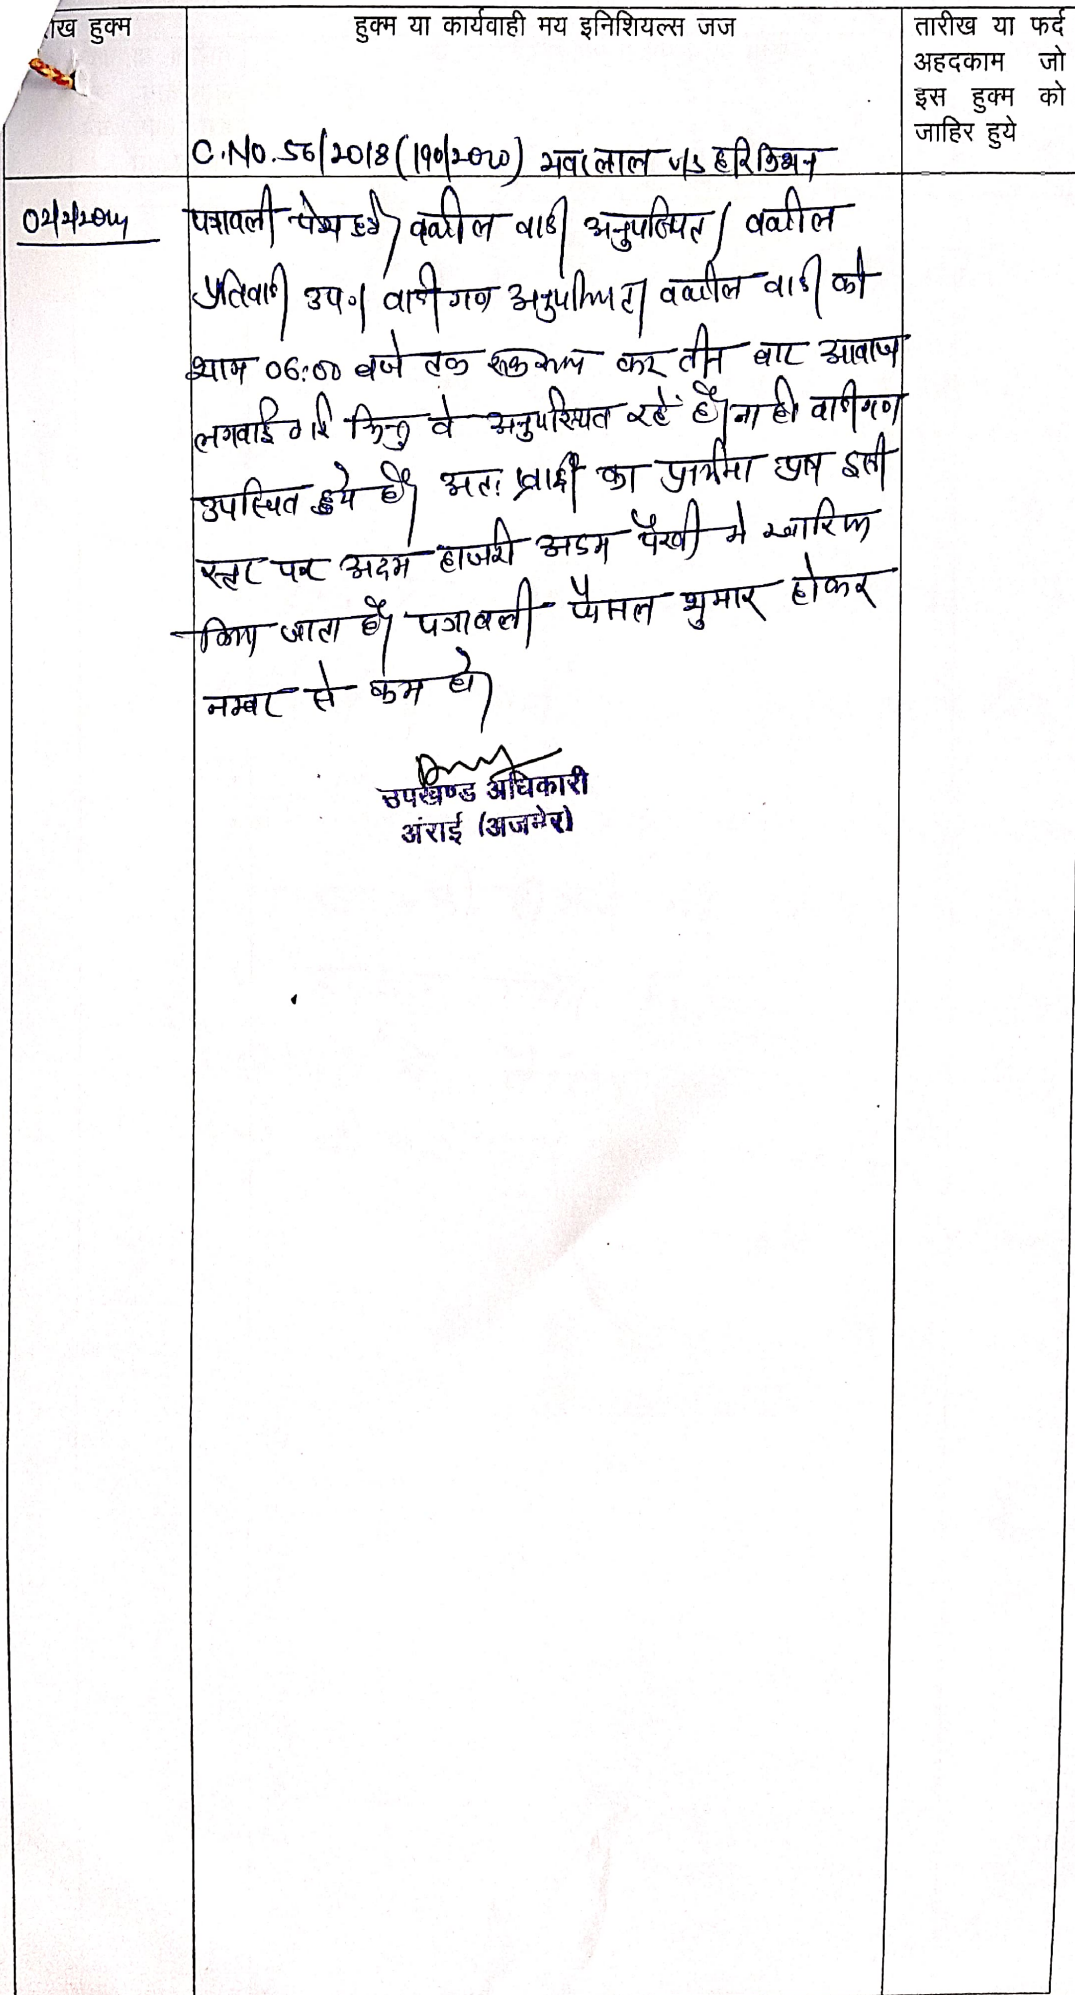 ख हुक्म
हुक्म या कार्यवाही मय इनिशियल्स जज
तारीख या फर्द
अहदकाम जो
इस हुक्म को
जाहिर हुये
C.NO.56/2018 (190/2020) भवरलाल v/s हरिकिशन
पत्रावली पेश हुई। वकील वादी अनुपस्थित। वकील
प्रतिवादी उप०। वादीगण अनुपस्थित। वकील वादी को
शाम 06:00 बजे तक कर तीन बार आवाज
लगवाई गई किन्तु वे अनुपस्थित रहे है। ना ही वादीगण
उपस्थित हुये है। अतः का इसी
स्तर पर अदम हाजरी अदम पैरवी मे खारिज
किया जाता है। पत्रावली फैसल शुमार होकर
नम्बर से कम हो।
उपखण्ड अधिकारी
अंराई (अजमेर)